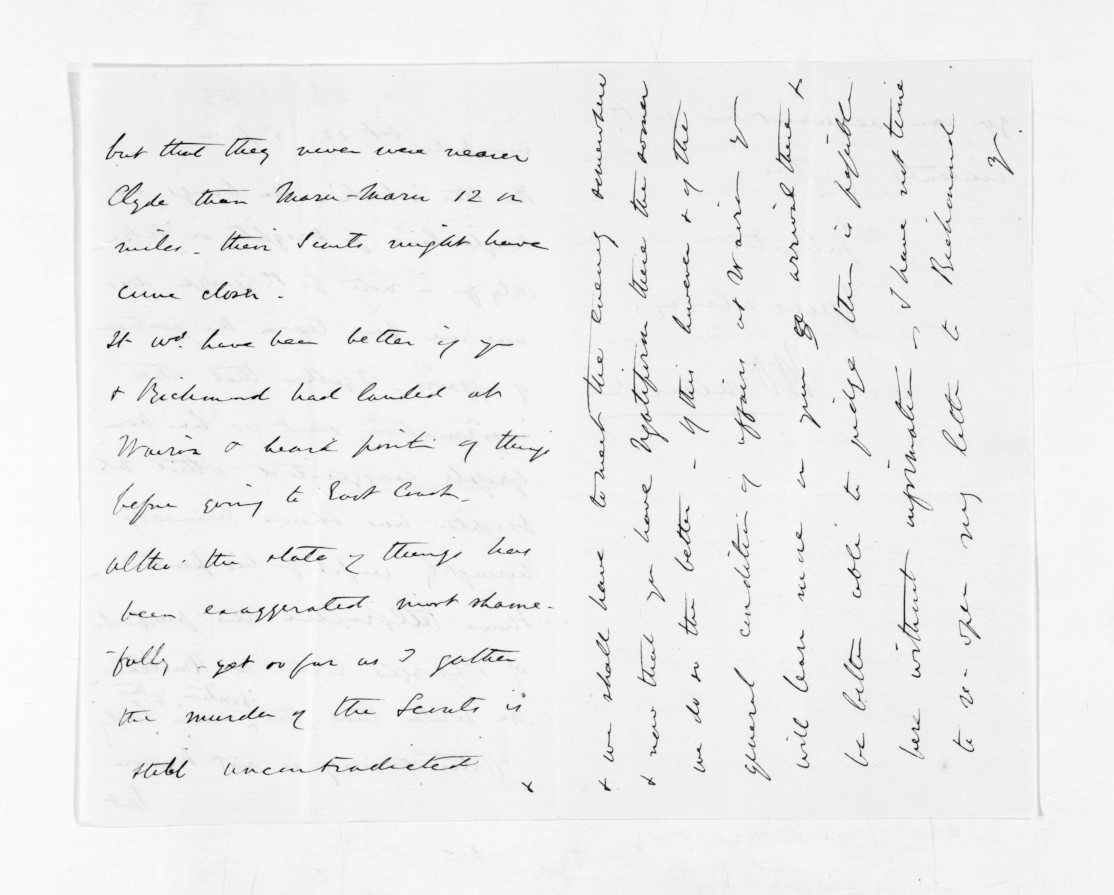 but that they never were nearer
Clyde than Maru-Maru 12 or
miles. their Scouts might have
come closer.
It wd. have been better if you
& Richmond had landed at
Wairoa & heard position of things
before going to East Coast.
altho: the state of things has
been exaggerated most shame-
-fully & yet so far as I gather
the murder of the Scouts is
still uncontradicted
&
& we shall have to meet the enemy somewhere
& now that you have Ngatiporou there the sooner
we do so the better - of this however & of the
general condition of affairs at Wairoa you
will learn more on your arrival there &
be better able to judge than is possible
here without information - I have not time
to re-open my letter to Richmond